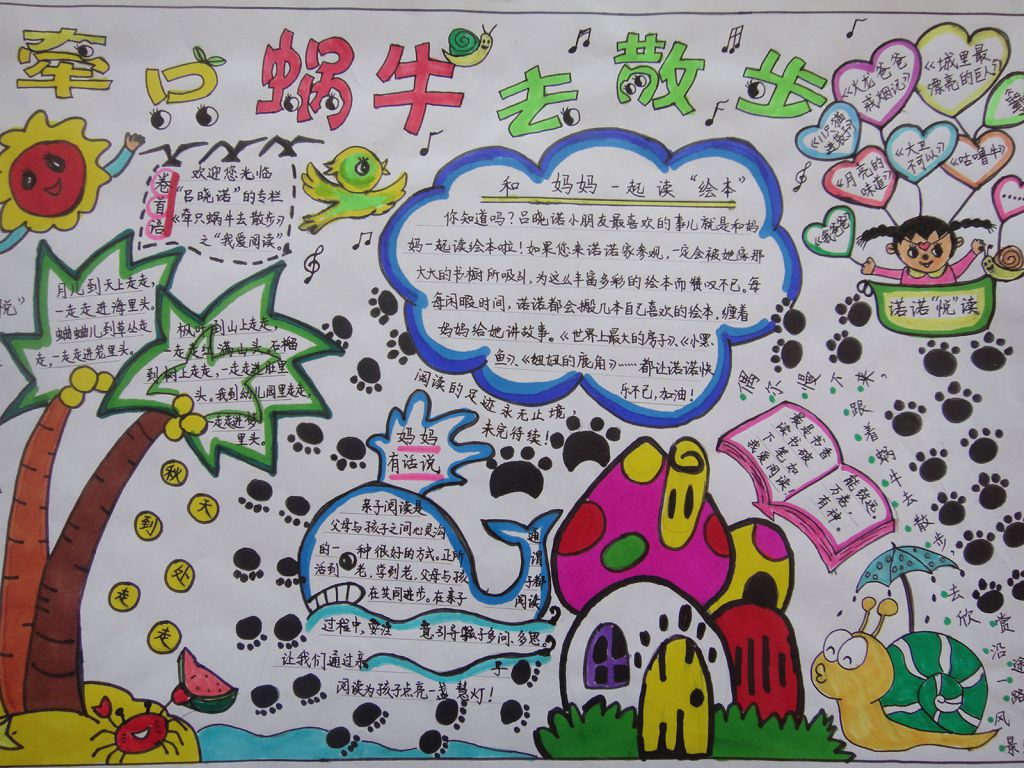 牵只蜗牛去散步
卷首语
欢迎您光临
“吕晓诺”的专栏
《牵只蜗牛去散步》
之“我爱阅读”
和妈妈一起读“绘本”
你知道吗？吕晓诺小朋友最喜欢的事儿就是和妈
妈一起读绘本啦！如果您来诺诺家参观，一定会被她家那
大大的书橱所吸引，为这么丰富多彩的绘本而赞叹不已。每
每闲暇时间，诺诺都会搬几本自己喜欢的绘本，缠着
妈妈给她讲故事。《世界上最大的房子》、《小黑
鱼》、《妞妞的鹿角》……都让诺诺快
乐不已，加油！
《火龙爸爸
戒烟记》
《城里最
漂亮的巨人》
《月亮的
味道》
《大卫
不可以》
《咕噜牛》
《我爸爸》
诺诺“悦”读
悦”
月儿到天上走走，
一走走进海里头。
蝈蝈儿到草丛走
走，一走走进笼里头。
枫叶到山上走走，
一走走红满山头。石榴
到树上走走，一走走进肚里
头。我到幼儿园里走走，
一走走进梦
里头。
秋
天
到
处
走
走
阅读的足迹永无止境，
未完待续！
妈妈
有话说
亲子阅读是
父母与孩子之间心灵沟
通的一种很好的方式。正所谓
活到老，学到老，父母与孩子都
在共同进步。在亲子阅读
过程中，要注意引导孩子多问、多思。
让我们通过亲子
阅读为孩子点亮一盏慧灯！
最是书香
能致远。
读书破
万卷，
下笔如
有神。
我爱阅读！
偶尔慢下来，
跟着蜗牛去散步，
去欣赏沿途一路风景